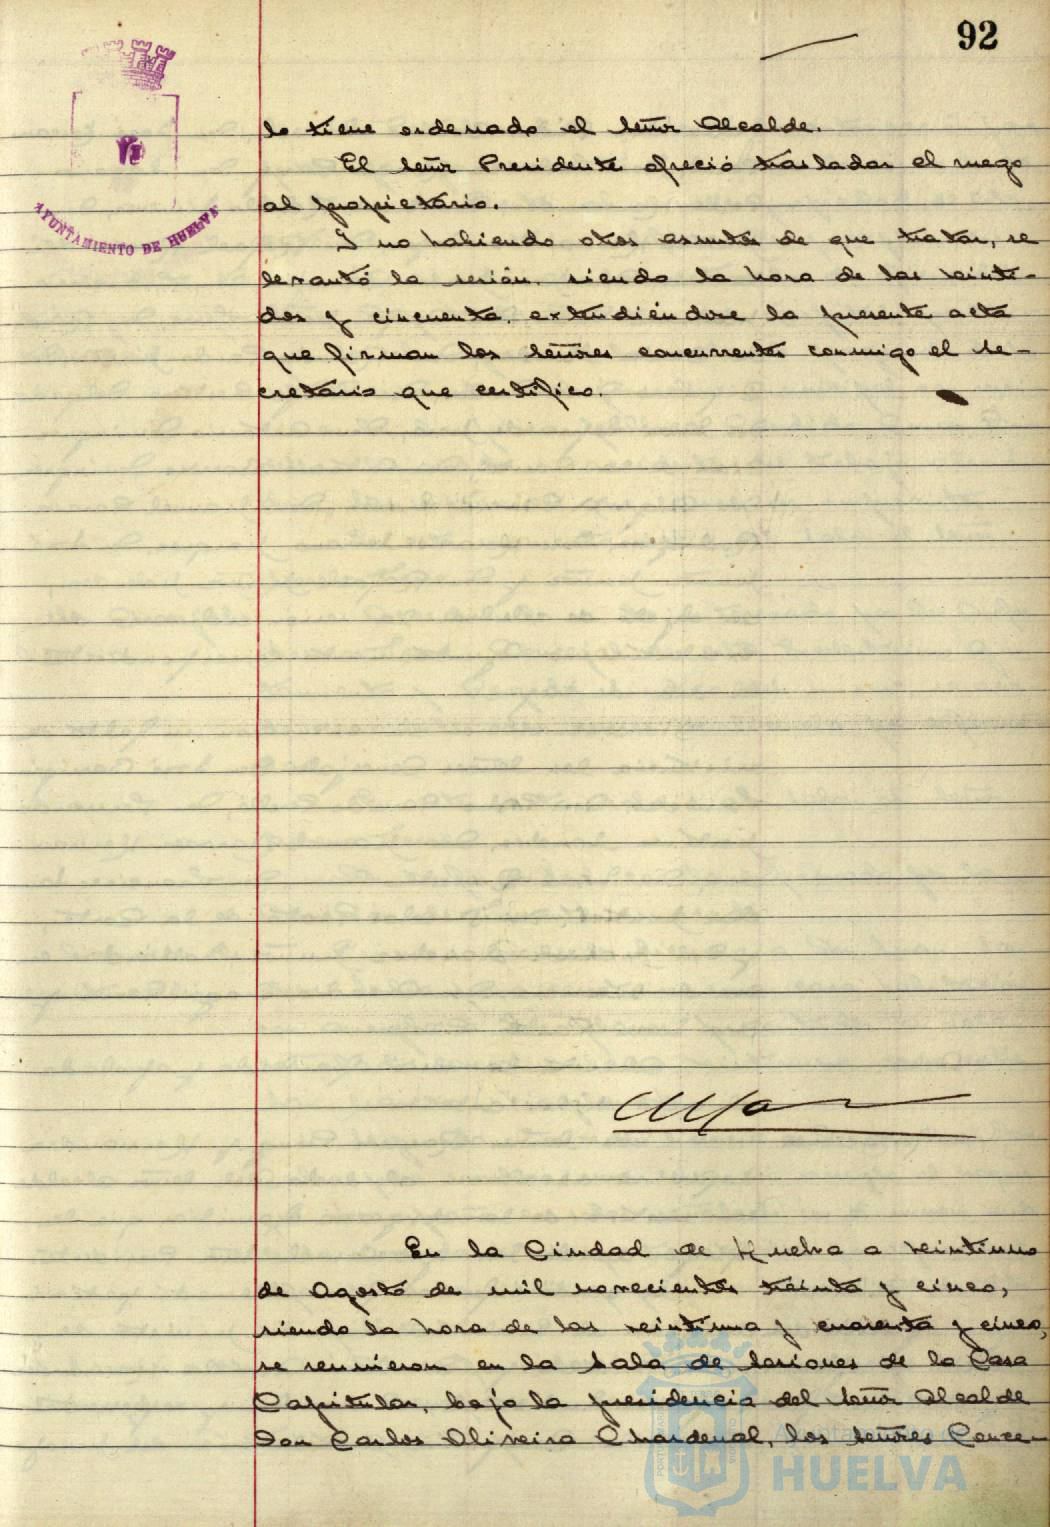 92
AYUNTAMIENTO DE HUELVA
lo tiene ordenado el Señor Alcalde.
El Señor Presidente ofreció trasladar el ruego
al propietario.
Y no habiendo otros asuntos de que tratar, se
levantó la sesión, siendo la hora de las veinti-
dos y cincuenta, extendiéndose la presente acta
que firman los Señores concurrentes conmigo el Se-
cretario que certifico.
En la Ciudad de Huelva a veintiuno
de Agosto de mil novecientos treinta y cinco,
siendo la hora de las veintiuna y cuarenta y cinco,
se reunieron en la Sala de Sesiones de la Casa
Capitular, bajo la presidencia del Señor Alcalde
Don Carlos Oliveira Chardenal, los Señores Conce-
HUELVA